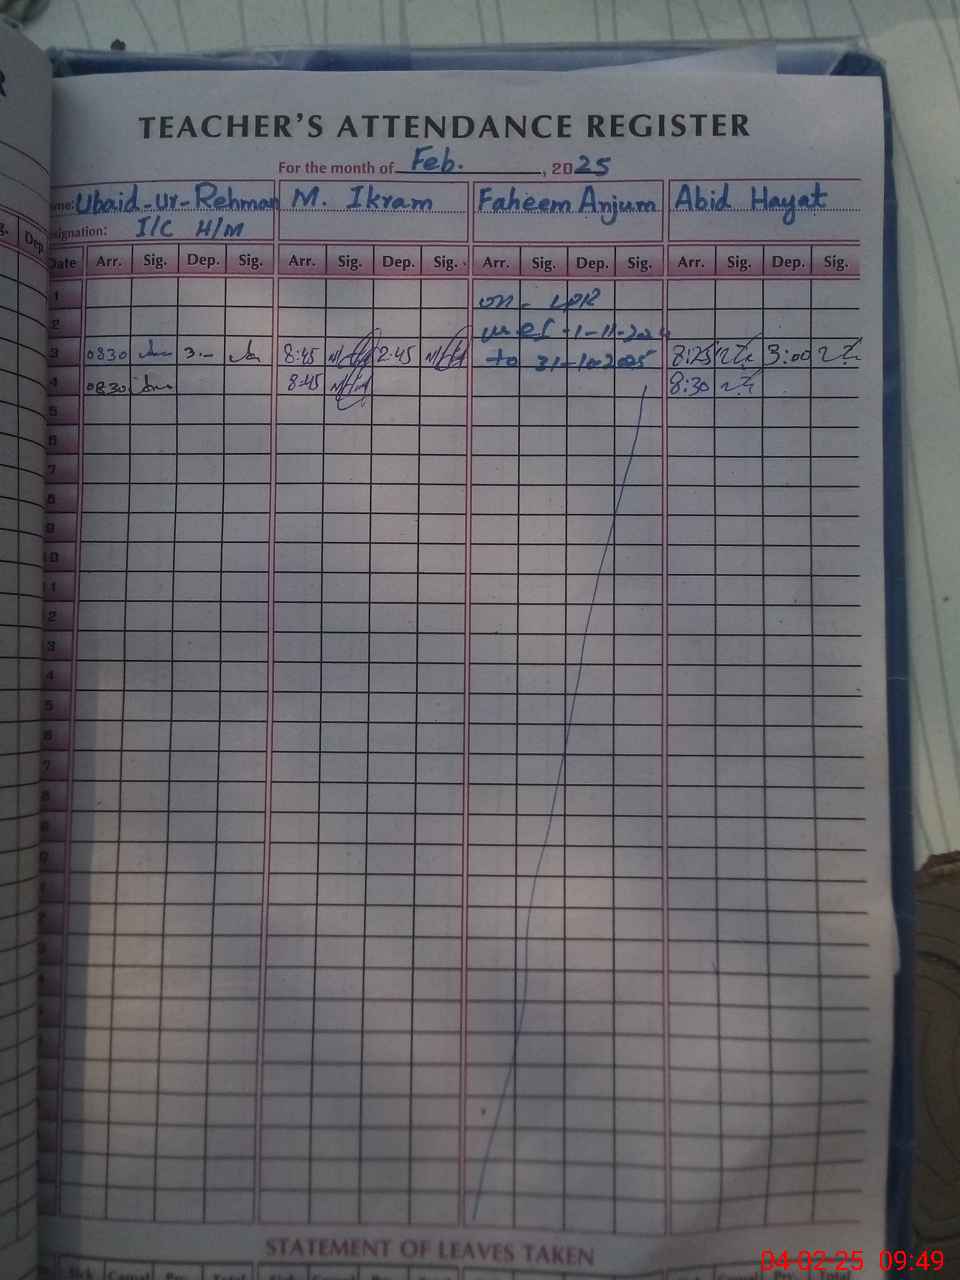 TEACHER'S ATTENDANCE REGISTER
For the month of Feb. , 2025
me: Ubaid-ur-Rehman M. Ikram Faheem Anjum Abid Hayat
signation: I/C H/M
Date Arr. Sig. Dep. Sig. Arr. Sig. Dep. Sig. Arr. Sig. Dep. Sig. Arr. Sig. Dep. Sig.
1 on - LPR
2 w.e.f - 1-11-2024
3 0830 3.- 8:45 2:45 to 31-10-2025 8:25 3:00
4 0830 8:45 8:30
5
6
7
8
9
10
11
2
3
4
5
6
7
8
9
STATEMENT OF LEAVES TAKEN
04-02-25 09:49